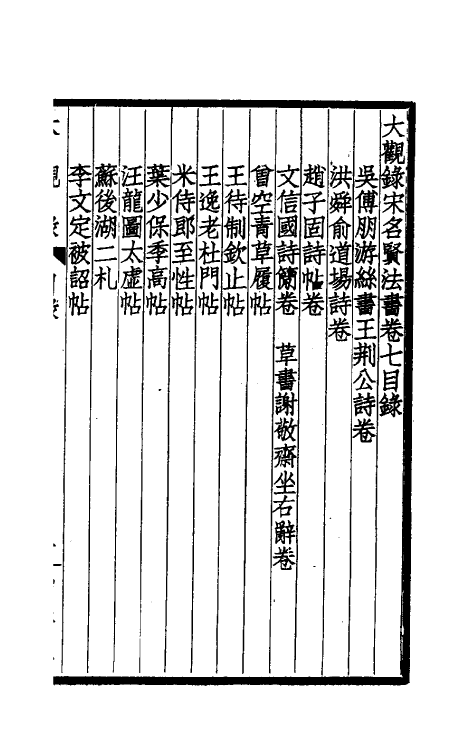 大觀錄宋名賢法書卷七目錄
吳傅朋游絲書王荆公詩卷
洪舜俞道場詩卷
趙子固詩帖卷
文信國詩簡卷 草書謝敬齋坐右辭卷
曾空青草履帖
王待制欽止帖
王逸老杜門帖
米侍郎至性帖
葉少保季高帖
汪龍圖太虛帖
蘇後湖二札
李文定被詔帖